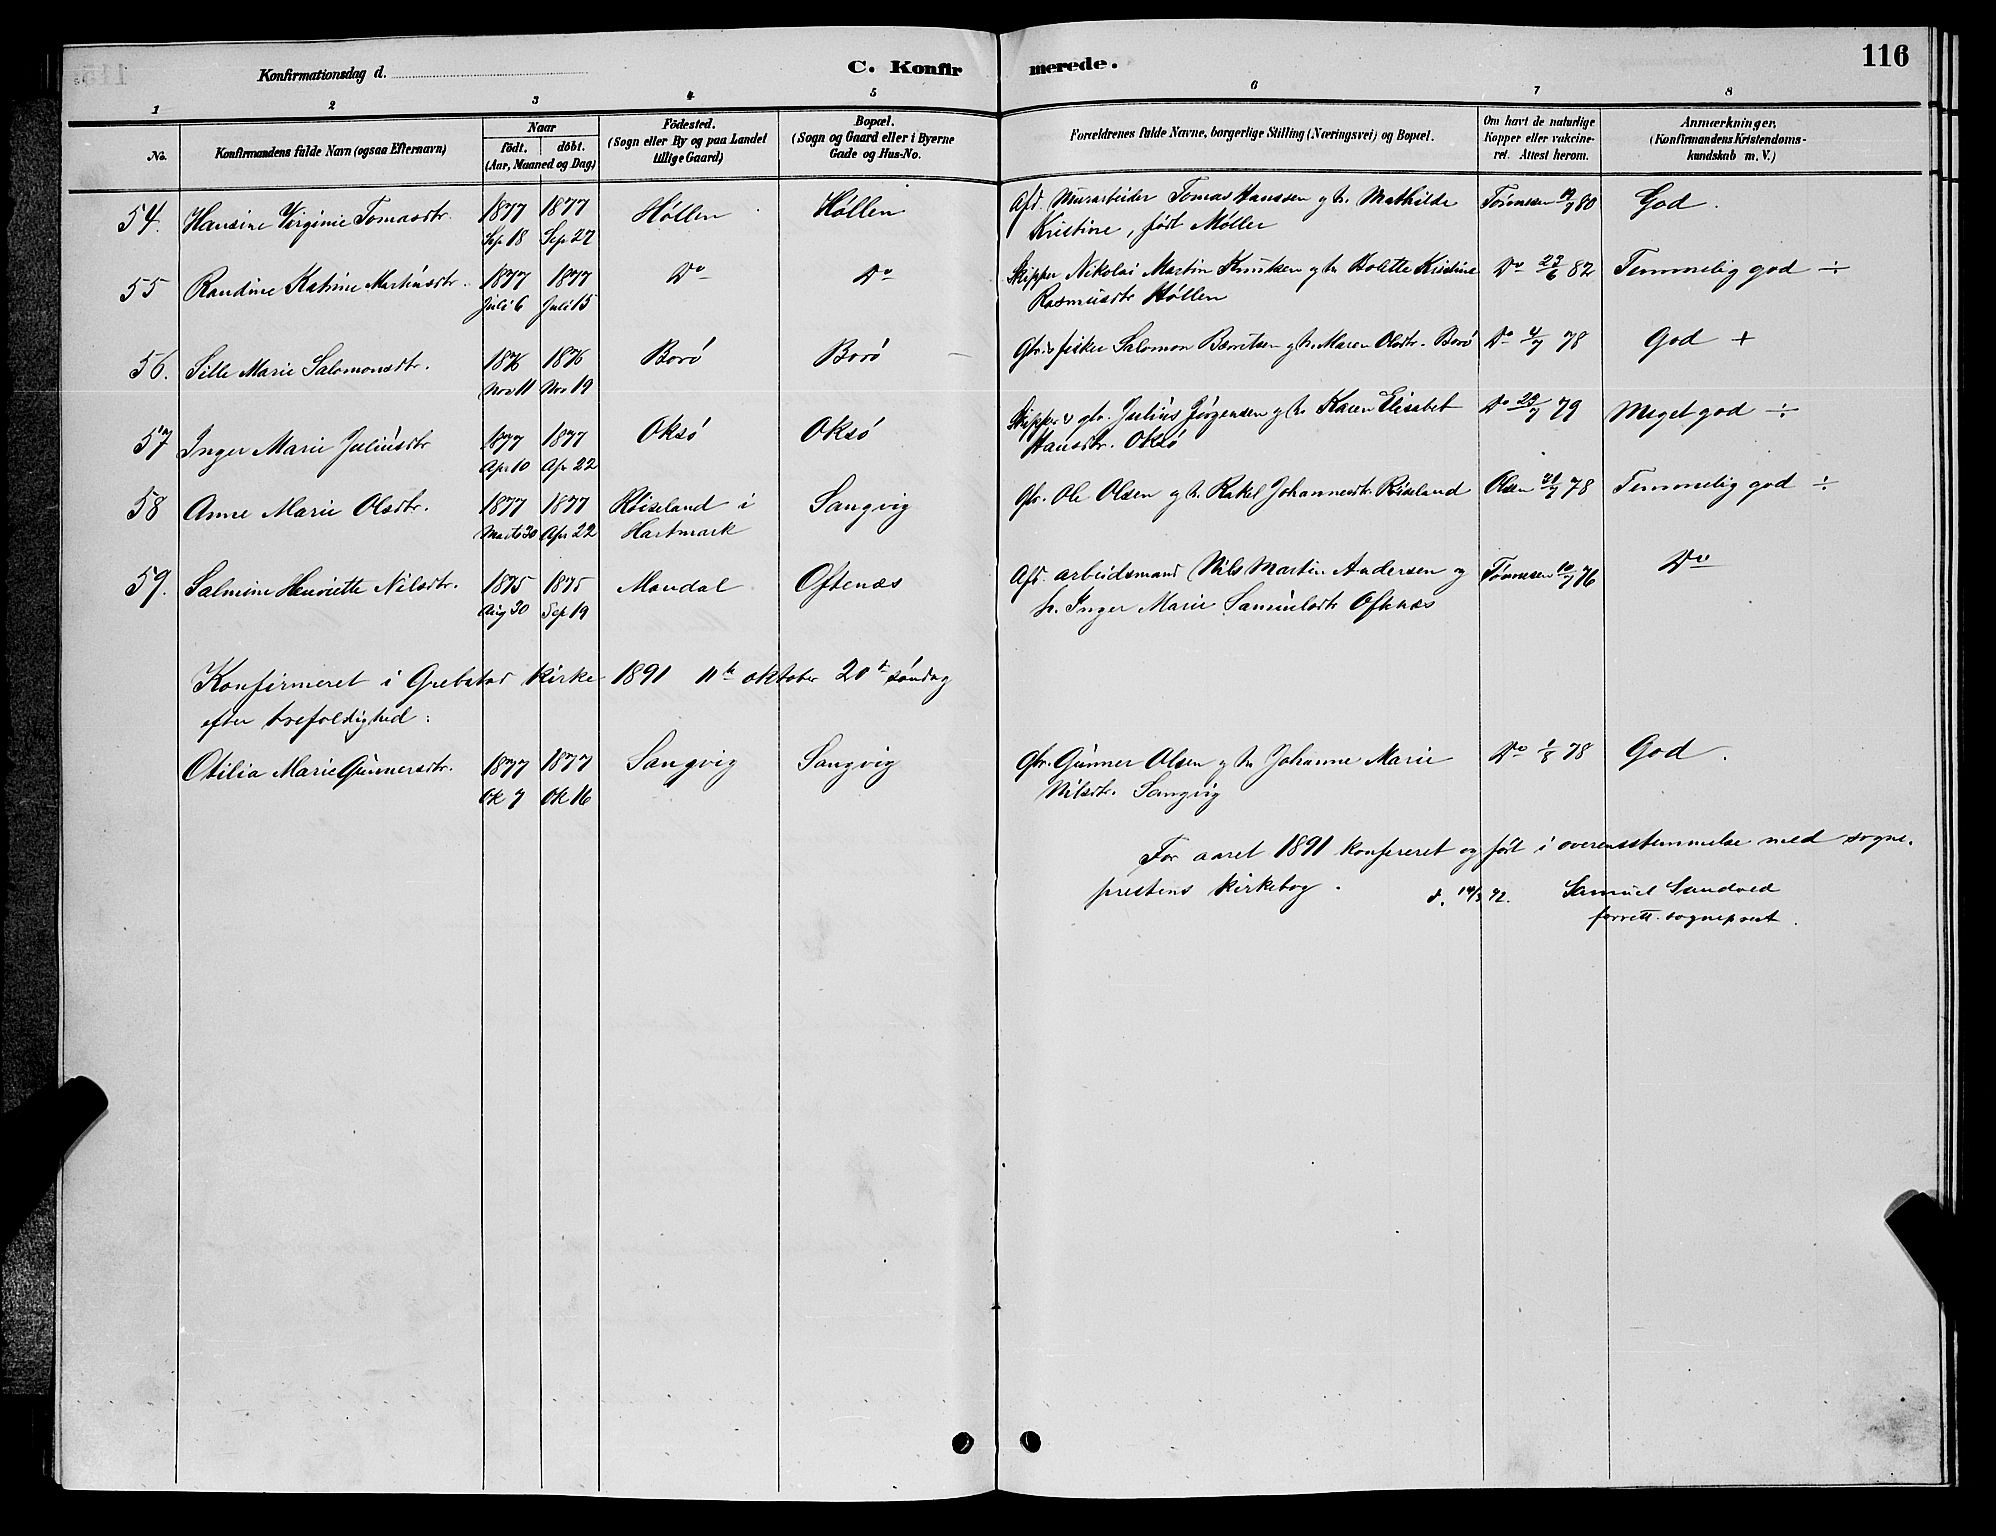 116
Konfirmationsdag d.
C. Konfirmerede.
1 2 3 4 5 6 7 8
No.
Konfirmandens fulde Navn (ogsaa Efternavn)
Naar
födt. döbt.
(Aar, Maaned og Dag)
Födested.
(Sogn eller By og paa Landet
tillige Gaard)
Bopæl.
(Sogn og Gaard eller i Byerne
Gade og Hus-No.
Forældrenes fulde Navne, borgerlige Stilling (Næringsvei) og Bopæl.
Om havt de naturlige
Kopper eller vakcine-
ret. Attest herom.
Anmærkninger,
(Konfirmandens Kristendoms-
kundskab m. V.)
54. Hansine Virginie Tomasdtr. 1877 1877 Høllen Høllen Afd. Murarbeider Tomas Hanssen og h. Mathilde 80 God.
Sep 18 Sep 27 Kristine, født Møller
55 Randine Katrine Martinsdtr. 1877 1877 Do Do Skipper Nikolai Martin Knutsen og h. Kristine Do 23/6 82 Temmelig god ÷
Juli 6 Juli 15 Rasmusdtr Høllen
56. Sille Marie Salomonsdtr. 1876 1876 Borø Borø Gbr. & fisker Salomon Berntsen og h. Maren Olsdtr. Borø Do 4/7 78 God +
Nov 11 Nov 19
57 Inger Marie Juliusdtr 1877 1877 Oksø Oksø Skipper & gbr. Julius Jørgensen og h. Karen Elisabet Do 29/7 79 Meget god ÷
Apr 10 Apr 22 Hansdtr. Oksø
58 Anne Marie Olsdtr. 1877 1877 Røiseland i Sangvig Gbr. Ole Olsen og h. Rakel Johannesdtr. Røiseland Olsen 78 Temmelig god ÷
Marts 30 Apr 22 Hartmark
59. Salmine Henriette Nilsdtr. 1875 1875 Mandal Oftenæs Afd. arbeidsmand Nils Martin Andersen og Tønnesen 10/7 76 Do
Aug 30 Sep 19 h. Inger Marie Samuelsdtr Oftnæs
Konfirmeret i Grebstad kirke 1891 11te oktober 20de søndag
efter trefoldighed:
Otilia Marie Gunnersdtr. 1877 1877 Sangvig Sangvig Gbr. Gunner Olsen og h. Johanne Marie Do 1/8 78 God.
Ok 7 Ok 16 Nilsdtr. Sangvig
For aaret 1891 konfereret og ført i overensstemmelse med sogne-
prestens kirkebog. d. 92. Samuel Sandved
sogneprest.